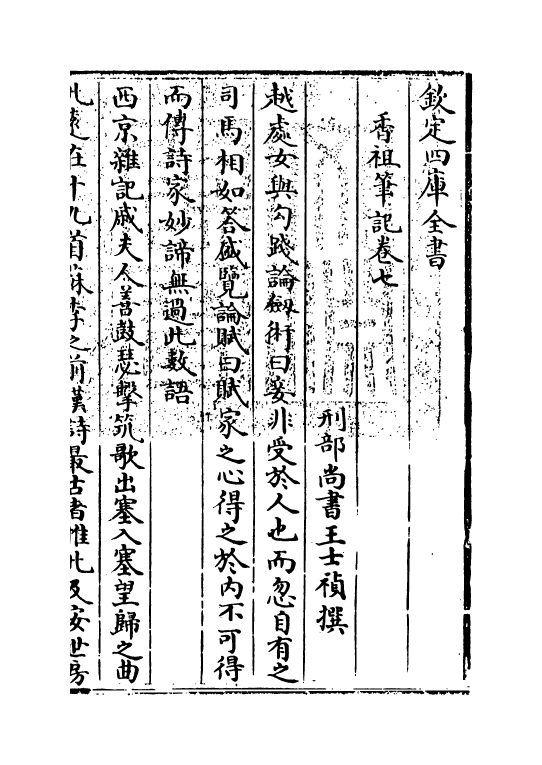 欽定四庫全書
香祖筆記卷七
刑部尚書王士禎撰
越處女與勾踐論劒術曰妾非受於人也而忽自有之
司馬相如答盛覽論賦曰賦家之心得之於内不可得
而傳詩家妙諦無過此數語
西京雜記戚夫人善鼓瑟擊筑歌出塞入塞望歸之曲
此遠在十九首蘇李之前漢詩最古者惟此及安世房